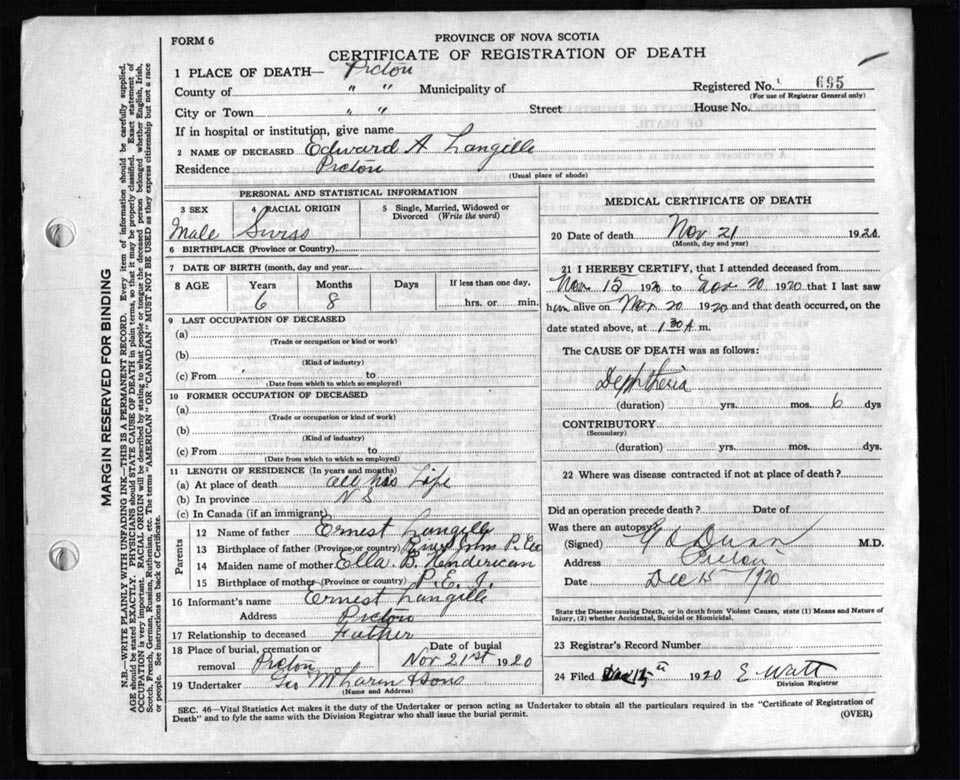 FORM 6
PROVINCE OF NOVA SCOTIA
CERTIFICATE OF REGISTRATION OF DEATH
1 PLACE OF DEATH— Pictou
County of " " Municipality of Registered No. 695
(For use of Registrar General only)
City or Town " " Street House No.
If in hospital or institution, give name
2 NAME OF DECEASED Edward A Langille
Residence Pictou
(Usual place of abode)
PERSONAL AND STATISTICAL INFORMATION
3 SEX 4 RACIAL ORIGIN 5 Single, Married, Widowed or Divorced (Write the word)
Male Swiss
6 BIRTHPLACE (Province or Country)
7 DATE OF BIRTH (month, day and year)
8 AGE Years Months Days If less than one day,
6 8 hrs. or min.
9 LAST OCCUPATION OF DECEASED
(a)
(Trade or occupation or kind or work)
(b)
(Kind of industry)
(c) From to
(Date from which to which so employed)
10 FORMER OCCUPATION OF DECEASED
(a)
(Trade or occupation or kind of work)
(b)
(Kind of industry)
(c) From to
(Date from which to which so employed)
11 LENGTH OF RESIDENCE (In years and months)
(a) At place of death all his Life
(b) In province N S
(c) In Canada (if an immigrant)
Parents
12 Name of father Ernest Langille
13 Birthplace of father (Province or country) John P. Co
14 Maiden name of mother Ella B. Henderican
15 Birthplace of mother (Province or country) P. E. I.
16 Informant's name Ernest Langille
Address Pictou
17 Relationship to deceased Father
18 Place of burial, cremation or removal Pictou Date of burial Nov 21st 1920
19 Undertaker Geo & Sons
(Name and Address)
MEDICAL CERTIFICATE OF DEATH
20 Date of death Nov 21 1920.
(Month, day and year)
21 I HEREBY CERTIFY, that I attended deceased from
Nov 15 1920 to Nov 20 1920 that I last saw
him alive on Nov 20 1920 and that death occurred, on the
date stated above, at 1 30 A m.
The CAUSE OF DEATH was as follows:
Dephtheria
(duration) yrs. mos. 6 dys
CONTRIBUTORY
(Secondary)
(duration) yrs. mos. dys.
22 Where was disease contracted if not at place of death?
Did an operation precede death? Date of
Was there an autopsy
(Signed) Dunn M.D.
Address Pictou
Date Dec 15 1920
State the Disease causing Death, or in death from Violent Causes, state (1) Means and Nature of
Injury, (2) whether Accidental, Suicidal or Homicidal.
23 Registrar's Record Number
24 Filed Dec 15 1920 E Watt
Division Registrar
SEC. 46—Vital Statistics Act makes it the duty of the Undertaker or person acting as Undertaker to obtain all the particulars required in the "Certificate of Registration of
Death" and to fyle the same with the Division Registrar who shall issue the burial permit.
(OVER)
MARGIN RESERVED FOR BINDING
N.B.—WRITE PLAINLY WITH UNFADING INK—THIS IS A PERMANENT RECORD. Every item of information should be carefully supplied.
AGE should be stated EXACTLY. PHYSICIANS should STATE CAUSE OF DEATH in plain terms, so that it may be properly classified. Exact statement of
OCCUPATION is very important. RACIAL ORIGIN will be described by stating to what people or tongue the deceased person belonged whether English, Irish,
Scotch, French, German, Russian, Ruthenian, etc. The terms "AMERICAN" OR "CANADIAN" MUST NOT BE USED as they express citizenship but not a race
or people. See instructions on back of Certificate.